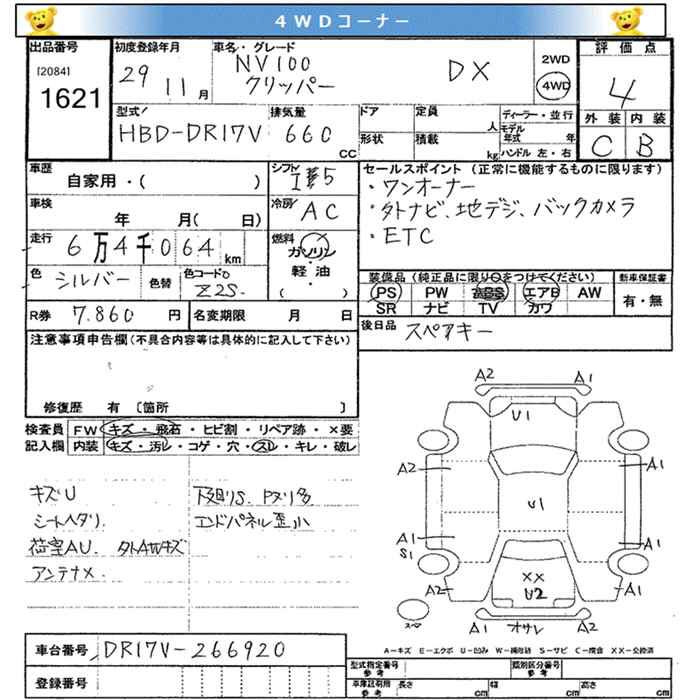 4WDコーナー
出品番号 初度登録年月 車名・グレード 評価点
[2084] 29 11月 NV100 クリッパー DX 2WD 4WD 4
1621
型式 排気量 ドア 定員 人 ディーラー・並行 外装 内装
HBD-DR17V 660 CC 形状 積載 kg モデル年式 年 C B
ハンドル 左・右
車歴 自家用・( ) シフト セールスポイント (正常に機能するものに限ります)
・ワンオーナー
車検 年 月( 日) 冷房 AC ・外ナビ、地デジ、バックカメラ
走行 6万4千064km 燃料 ガソリン・軽・油・( ) ・ETC
色 シルバー 色替 色コードNO Z2S 装備品 (純正品に限り○をつけてください) 新車保証書
PS PW ABS エアB AW 有・無
SR ナビ TV カワ
R券 7.860円 名変期限 月 日 後日品 スペアキー
注意事項申告欄(不具合内容等は具体的に記入して下さい)
修復歴 有 〔箇所 〕
検査員 FW キズ・飛石・ヒビ割・リペア跡・×要
記入欄 内装 キズ・汚レ・コゲ・穴・スレ・キレ・破レ
キズU 下廻りS、Pヌリ多
シートヘタリ、エンドパネル歪小
荷室AU、外AWキズ
アンテナX
A2 A1
U1
A2 A1
U1
A1 A1
S1
A2 XX A1
U2
スペア A1 オサレ A2
A-キズ E-エクボ U-凹み W-補修跡 S-サビ C-腐食 XX-交換済
車台番号 DR17V-266920 型式指定番号 参考 類別区分番号 参考
登録番号 車庫証明用 参考 長さ cm 幅 cm 高さ cm